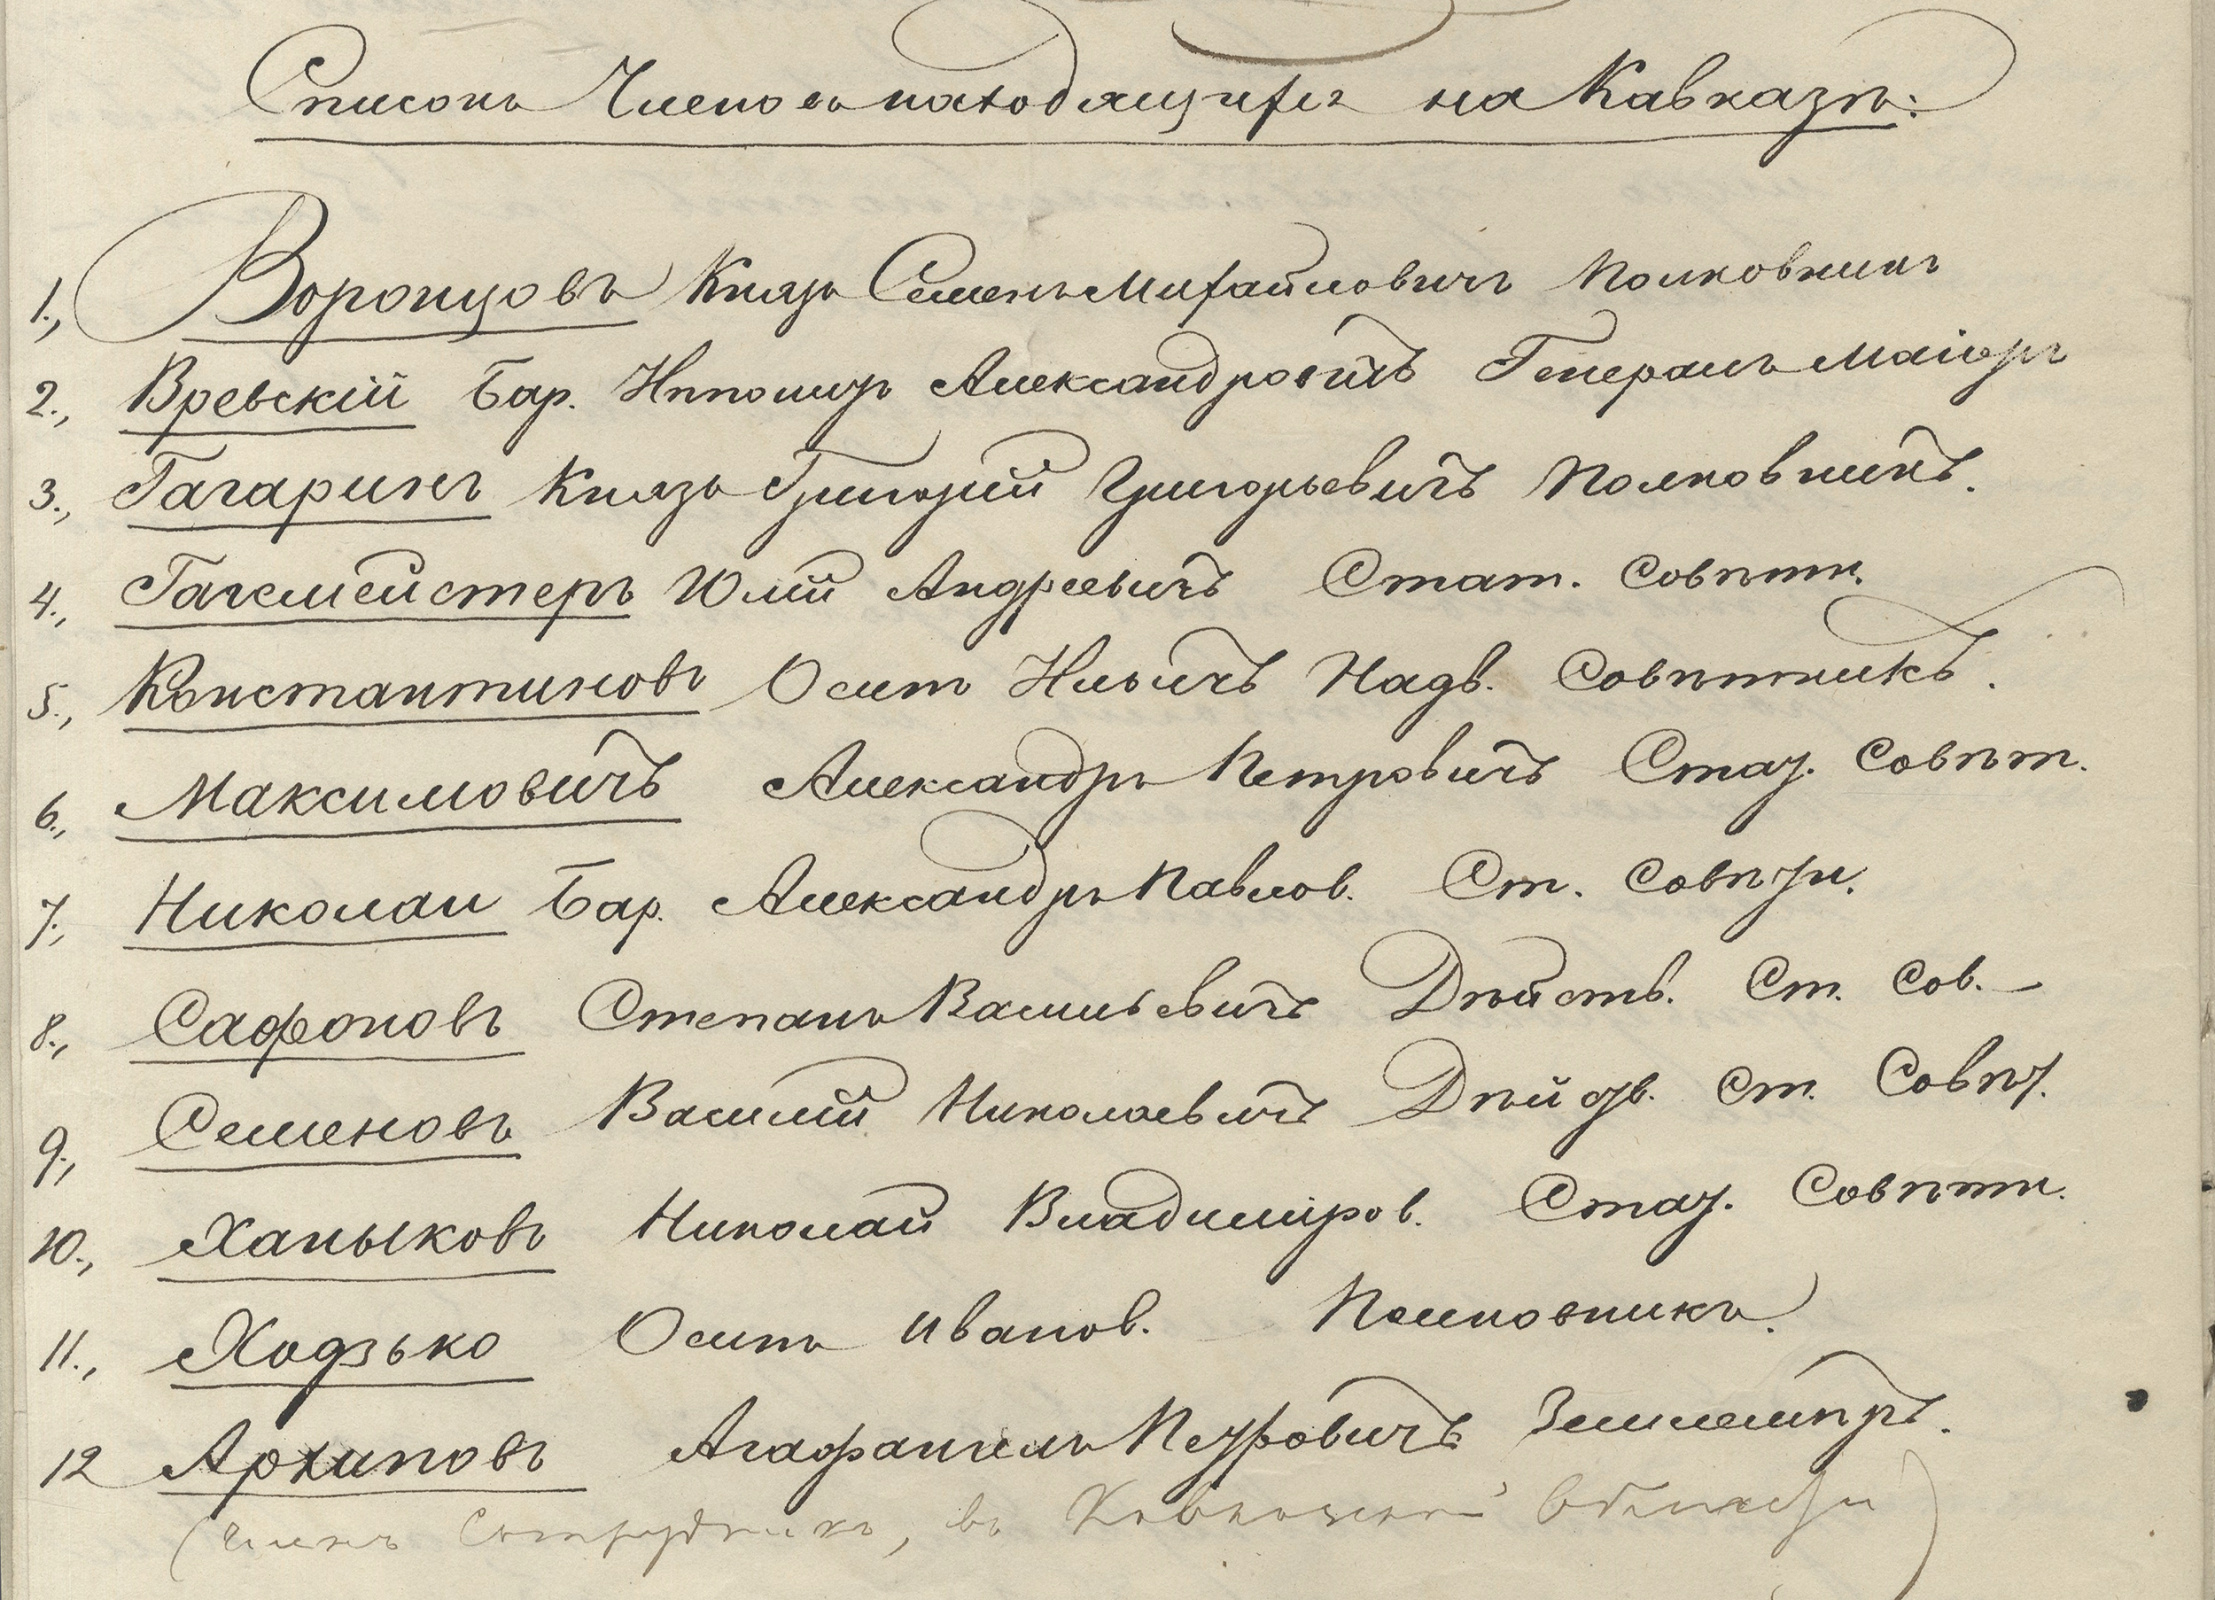 Списокъ Членовъ находящихся на Кавказѣ:
1., Воронцовъ Князь Семенъ Михайловичъ Полковникъ
2., Вревскій Бар. Ипполитъ Александровичъ Генералъ Маіоръ
3., Гагаринъ Князь Григорій Григорьевичъ Полковникъ.
4., Гагемейстеръ Юлій Андреевичъ Стат. Совѣтн.
5., Константиновъ Осипъ Ильичъ Надв. Совѣтникъ.
6., Максимовичъ Александръ Петровичъ Стат. Совѣт.
7., Николаи Бар. Александръ Павлов. Ст. Совѣтн.
8., Сафоновъ Степанъ Васильевичъ Дѣйств. Ст. Сов. —
9., Семеновъ Василій Николаевичъ Дѣйств. Ст. Совѣт.
10., Ханыковъ Николай Владиміров. Стат. Совѣтн.
11., Ходзько Осипъ Иванов. Полковникъ.
12 Архиповъ Агафангелъ Петровичъ Землемѣръ.
(Членъ Сотрудникъ, въ Кавказской Области)